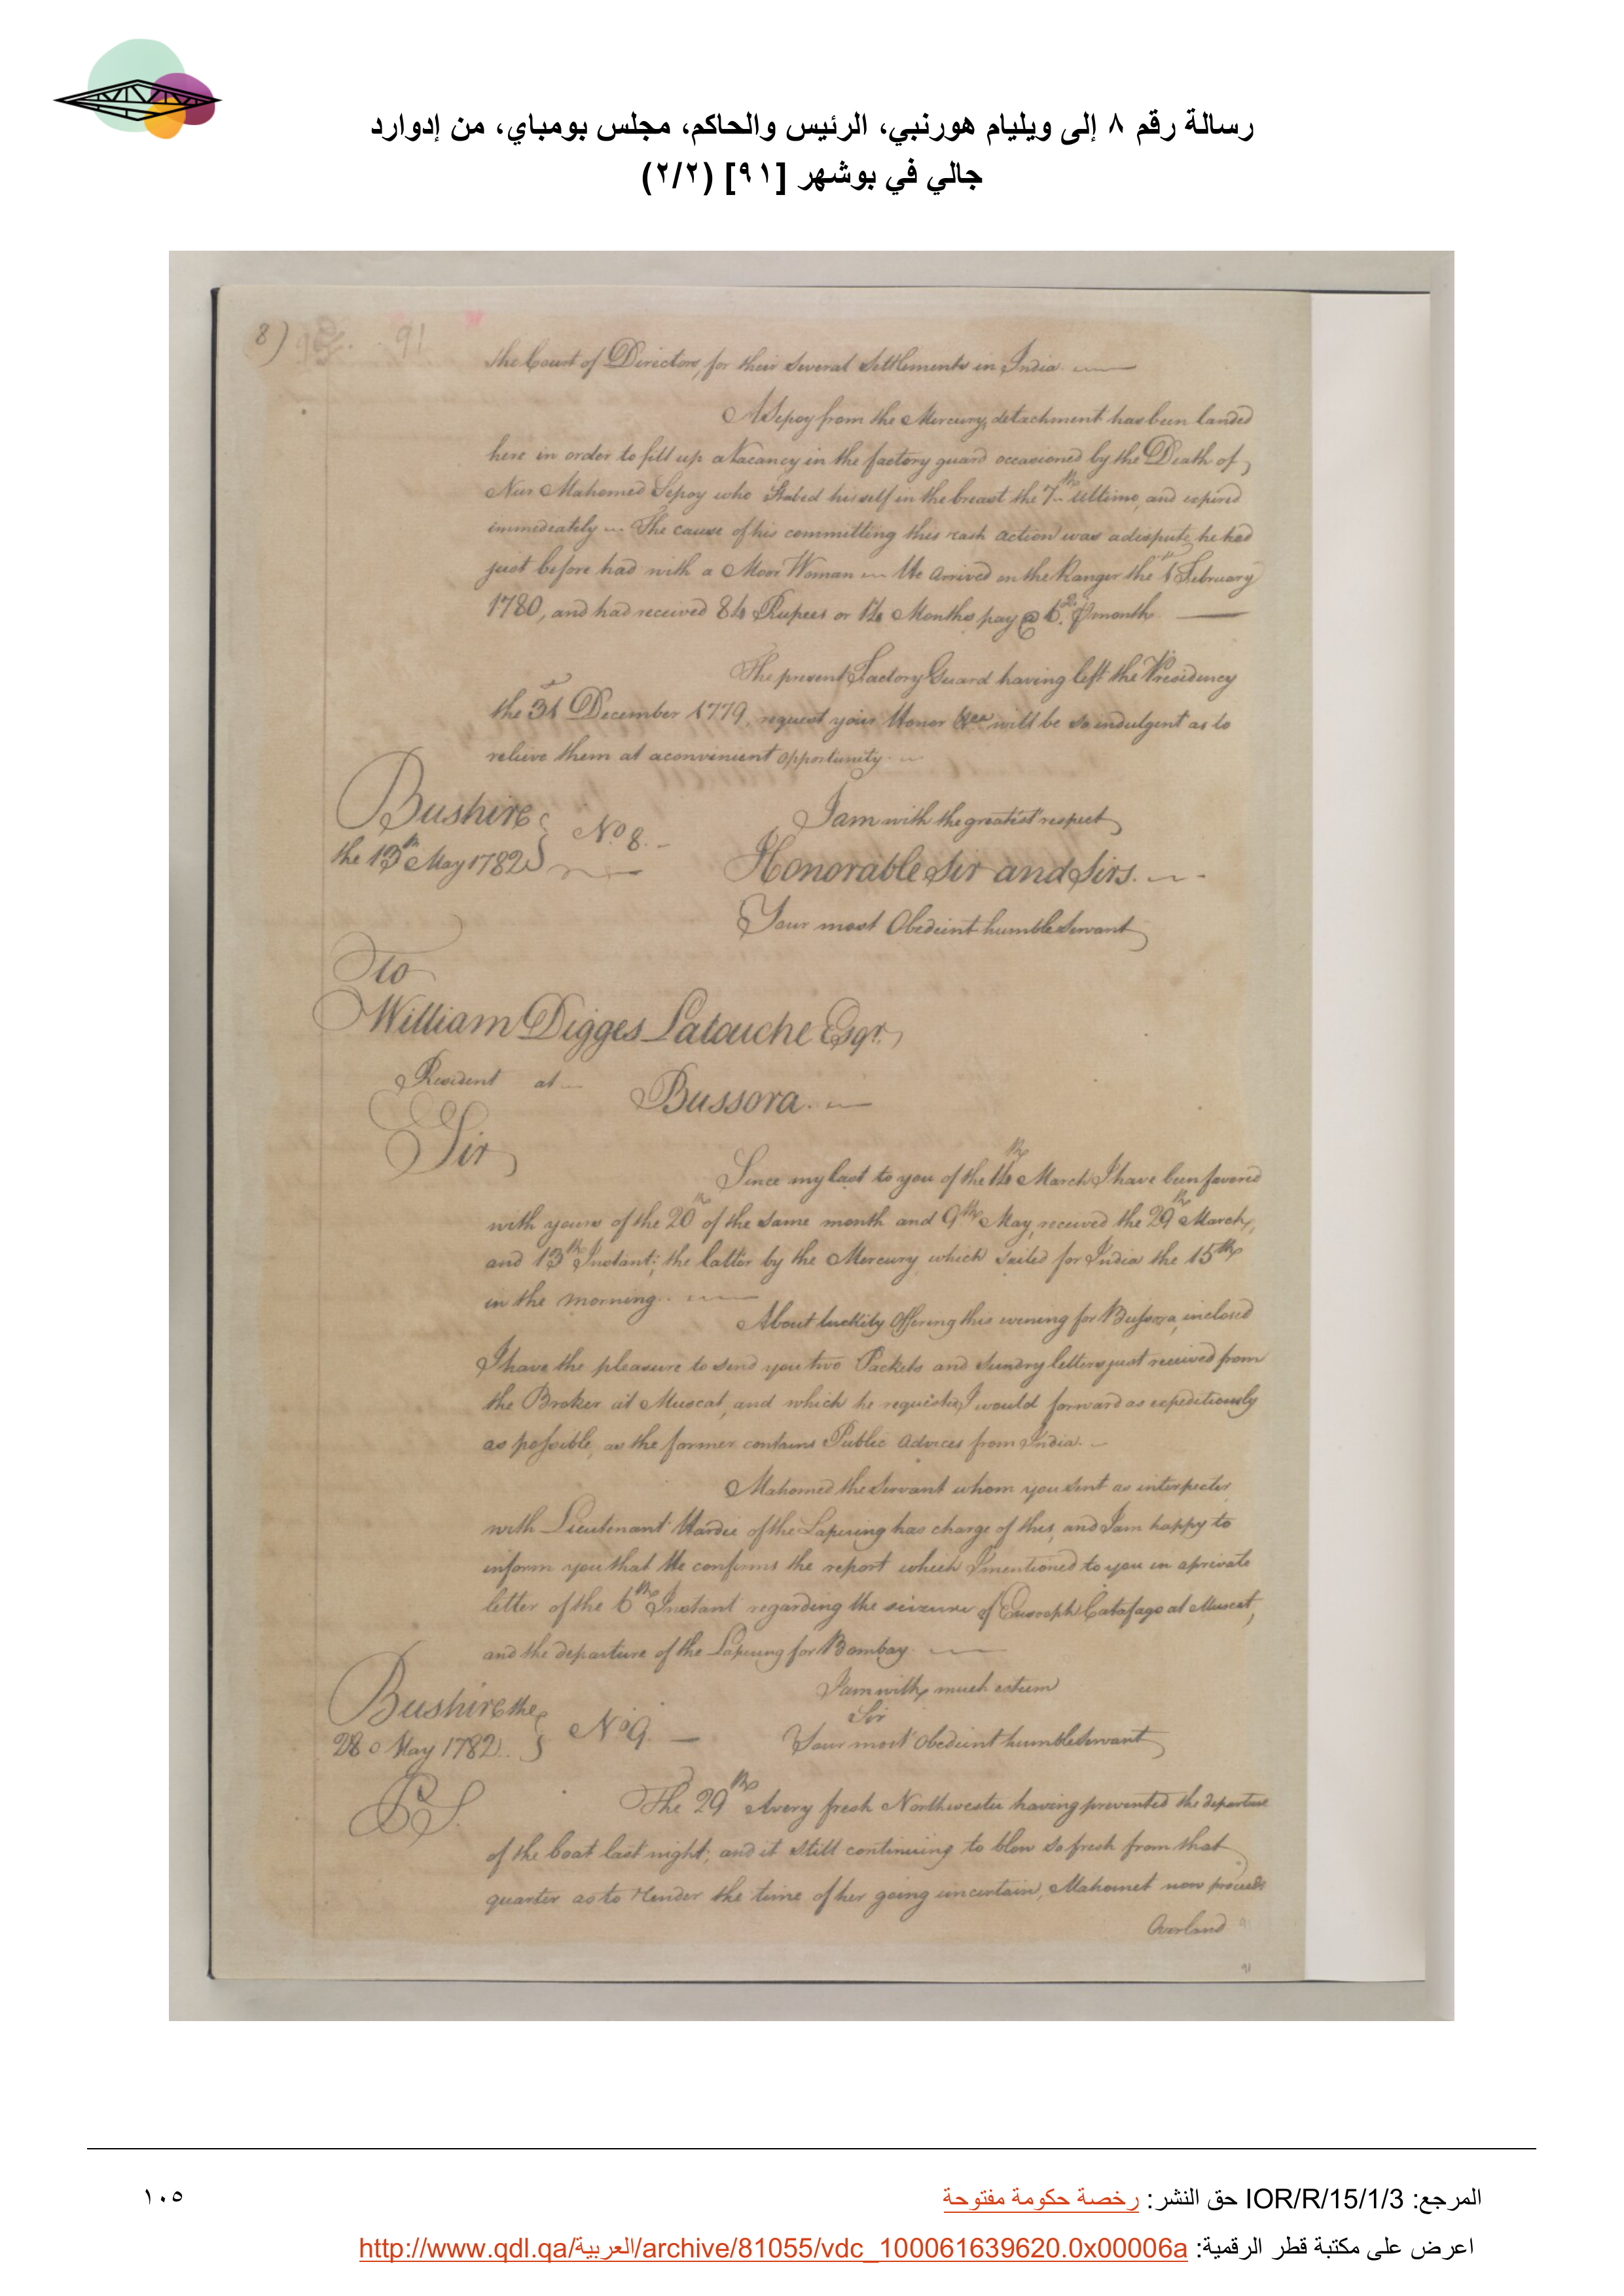 رسالة رقم ٨ إلى ويليام هورنبي، الرئيس والحاكم، مجلس بومباي، من إدوارد
جالي في بوشهر [٩١] (٢/٢)
8) 91
the Court of Directors, for their several Settlements in India.
A Sepoy from the Mercury, detachment has been landed
here in order to fill up a Vacancy in the factory guard occasioned by the Death of
Nur Mahomed Sepoy who Stabed himself in the breast the 7th Ultimo, and expired
immediately The cause of his committing this rash action was a dispute he had
just before had with a Moor Woman He arrived on the Ranger the 1st February
1780, and had received 84 Rupees or 14 Months pay @ 6 month
The present Factory Guard having left the Presidency
the 31st December 1779, request your Honor &ca will be so indulgent as to
relieve them at a convenient opportunity
Bushire
the 13th May 1782 No 8.
I am with the greatest respect
Honorable Sir and Sirs.
Your most Obedient humble Servant
To
William Digges Latouche Esqr.
Resident at
Bussora.
Sir
Since my last to you of the 14th March I have been favored
with yours of the 20th of the same month and 9th May, received the 29th March,
and 13th Instant; the latter by the Mercury which sailed for India the 15th
in the morning.
About luckily Offering this evening for Bussora, inclosed
I have the pleasure to send you two Packets and Sundry letters just received from
the Broker at Muscat, and which he requests I would forward as expeditiously
as possible, as the former contains Public Advices from India.
Mahomed the Servant whom you sent as interpreter
with Lieutenant Hardie of the Lapwing has charge of this, and I am happy to
inform you that He confirms the report which I mentioned to you in a private
letter of the 6th Instant regarding the seizure of Catafago at Muscat,
and the departure of the Lapwing for Bombay.
Bushire the
28 May 1782. No 9.
I am with much esteem
Sir
Your most Obedient humble Servant
PS. The 29th A very fresh Northwester having prevented the departure
of the boat last night; and it still continuing to blow so fresh from that
quarter as to render the time of her going uncertain, Mahomet now proceeds
Overland
91
المرجع: IOR/R/15/1/3 حق النشر: رخصة حكومة مفتوحة
١٠٥
اعرض على مكتبة قطر الرقمية: http://www.qdl.qa/العربية/archive/81055/vdc_100061639620.0x00006a